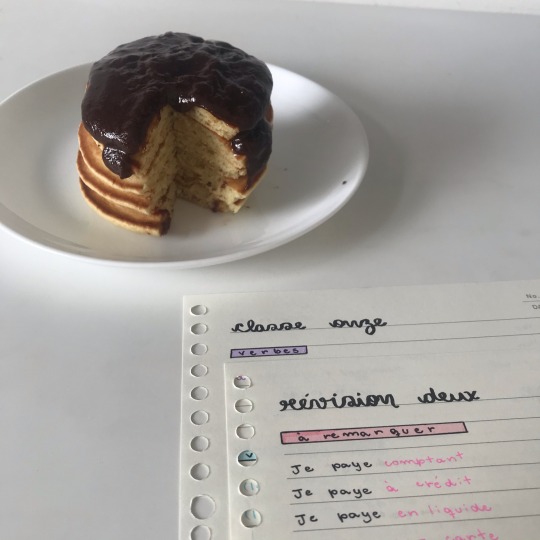 No.
classe onze
verbes
révision deux
à remarquer
Je paye comptant
Je paye à crédit
Je paye en liquide
carte